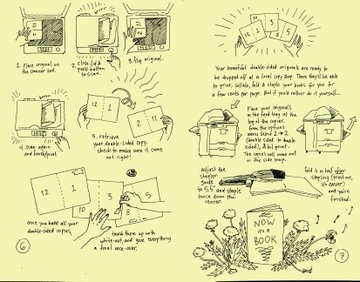 1. Place original on
the scanner bed.
2. Close lid &
push button
to scan.
3. Flip original.
4. Scan again
and hold/print
12
1
5. retrieve
your double-sided copy.
check to make sure it came
out right!
12
1
5
once you have all your
double-sided copies,
touch them up with
white-out, and give everything
a final once-over.
6
Your beautiful double-sided originals are ready
to be dropped off at a local copy shop. There they'll be able
to print, collate, fold & staple your books for you for
a few cents per page. But if you'd rather do it yourself...
Place your originals
in the feed tray at the
top of the copier.
From the options
menu select 2→2
(double sided to double
sided), & hit print.
The copies will come out
on the side tray.
adjust the
stapler
guide
to 5.5" and staple
twice down the
center.
Fold it in half after
stapling (trust me,
it's easier)
and
you're
finished!
NOW
it's a
BOOK
end
7